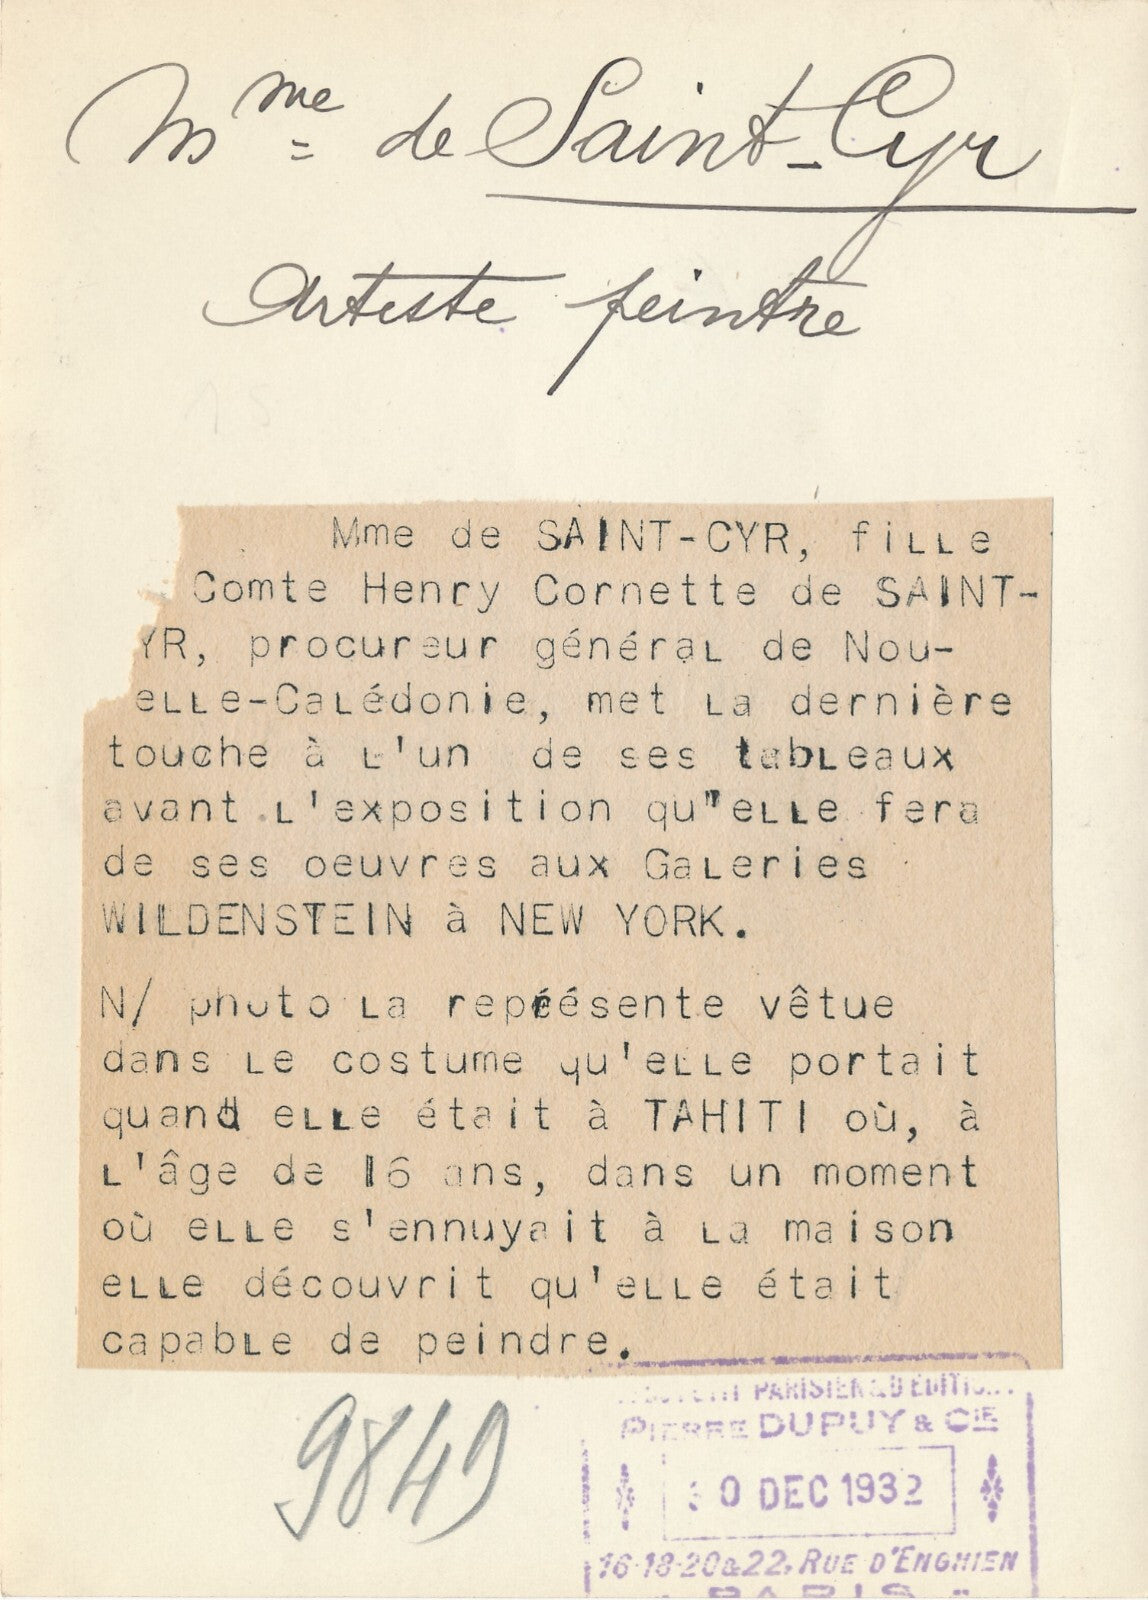 Mme de Saint-Cyr
Artiste peintre
Mme de SAINT-CYR, fille
Comte Henry Cornette de SAINT-
YR, procureur général de Nou-
elle-Calédonie, met la dernière
touche à l'un de ses tableaux
avant l'exposition qu"elle fera
de ses oeuvres aux Galeries
WILDENSTEIN à NEW YORK.
N/ photo la représente vêtue
dans le costume qu'elle portait
quand elle était à TAHITI où, à
l'âge de 16 ans, dans un moment
où elle s'ennuyait à la maison
elle découvrit qu'elle était
capable de peindre.
9849
PETIT PARISIEN & D'ÉDITION
PIERRE DUPUY & CIE
0 DEC 1932
16-18-20 & 22, RUE D'ENGHIEN
PARIS